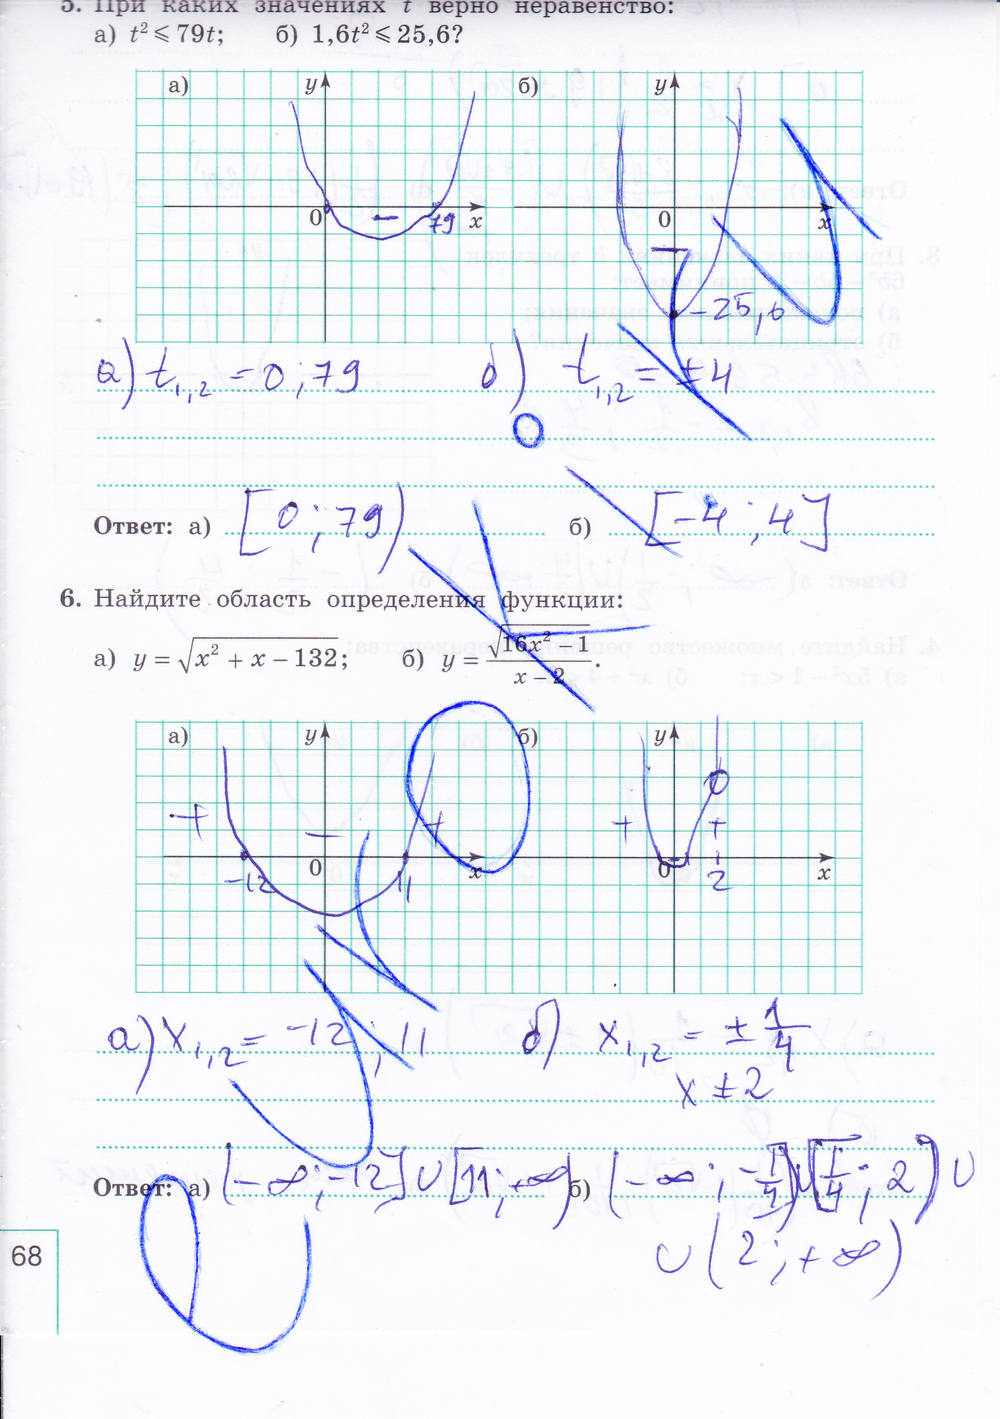 5. При каких значениях t верно неравенство:
а) t² ⩽ 79t;      б) 1,6t² ⩽ 25,6?
а) y 0 − 79 x
б) y 0 x − −25,6
а) t₁,₂ = 0; 79      б) t₁,₂ = ±4
Ответ: а) [0; 79)      б) [−4; 4]
6. Найдите область определения функции:
а) y = √(x² + x − 132);      б) y = √(16x² − 1)/(x − 2).
а) y + − + −12 0 11 x
б) y + − + 0 2 x
а) x₁,₂ = −12; 11      б) x₁,₂ = ± 1/4
x ± 2
Ответ: а) (−∞; −12] ∪ [11; +∞)      б) (−∞; −1/4] ∪ [1/4; 2) ∪
∪ (2; +∞)
68